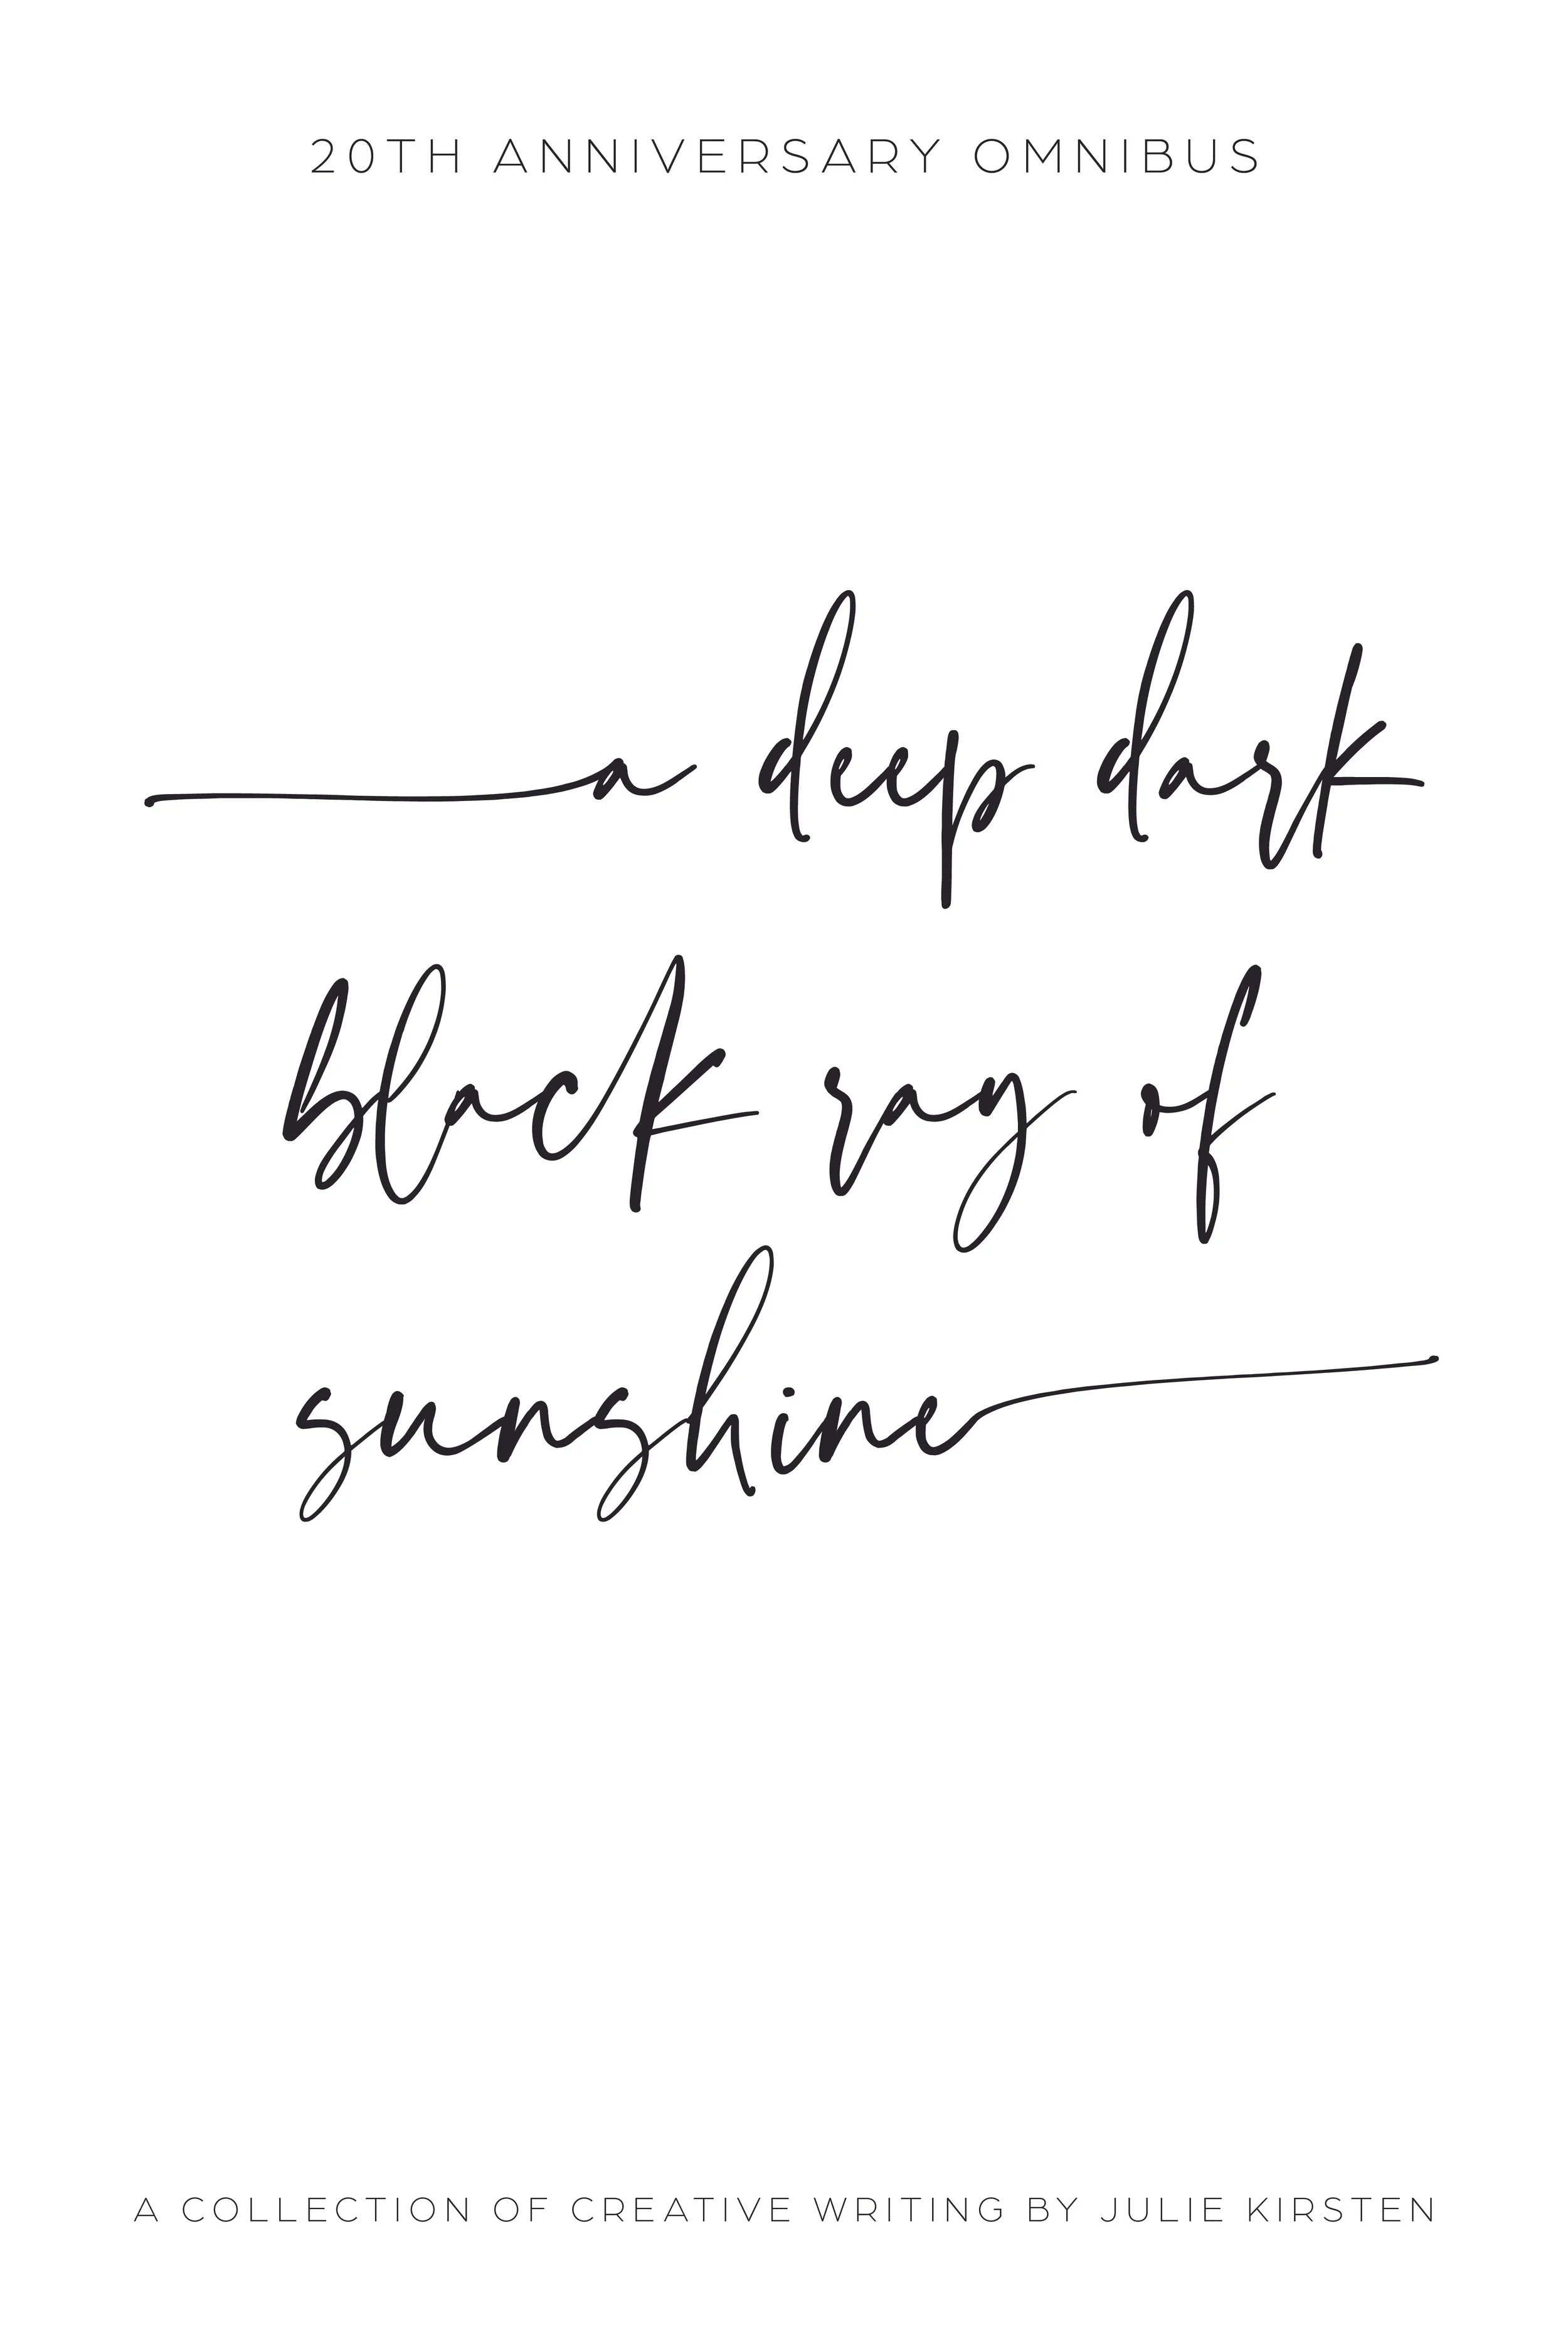 20TH ANNIVERSARY OMNIBUS
a deep dark
black ray of
sunshine
A COLLECTION OF CREATIVE WRITING BY JULIE KIRSTEN